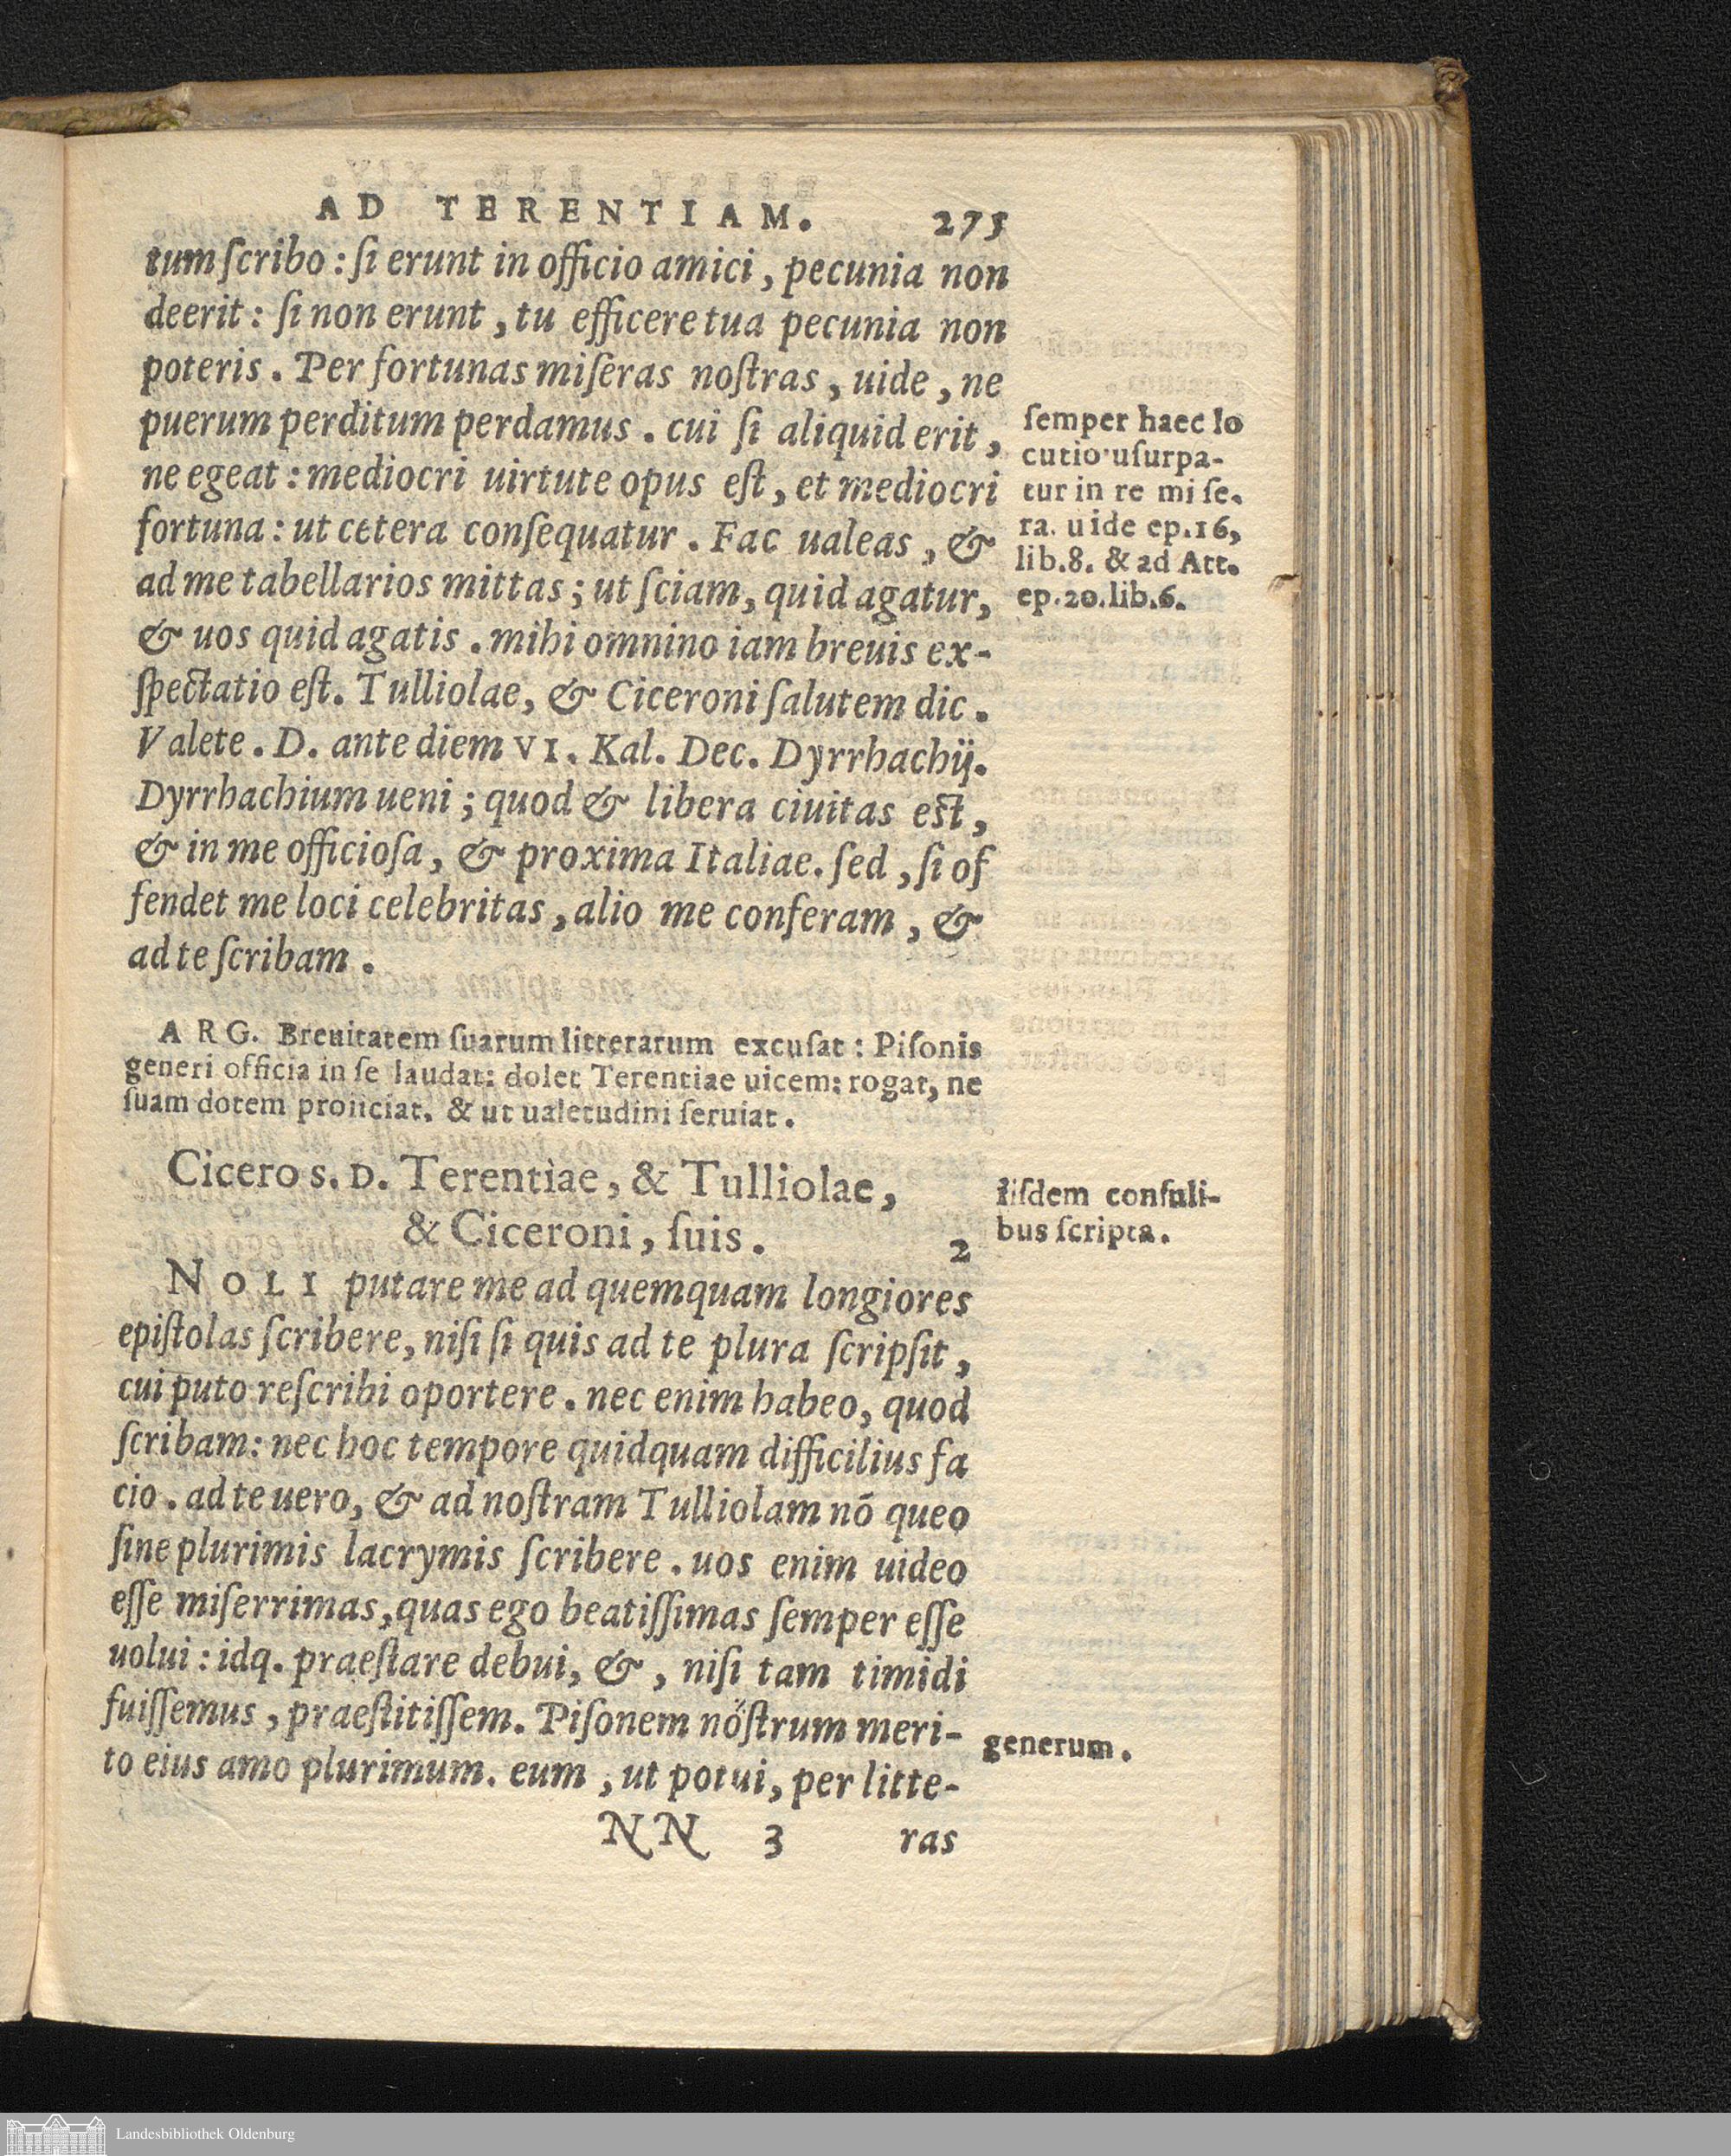 AD TERENTIAM. 275
tum ſcribo : ſi erunt in officio amici , pecunia non
deerit : ſi non erunt , tu efficere tua pecunia non
poteris . Per fortunas miſeras noſtras , uide , ne
puerum perditum perdamus . cui ſi aliquid erit ,
ne egeat : mediocri uirtute opus eſt , et mediocri
fortuna : ut cetera conſequatur . Fac ualeas , &
ad me tabellarios mittas ; ut ſciam, quid agatur,
& uos quid agatis . mihi omnino iam breuis ex-
ſpectatio eſt. Tulliolae, & Ciceroni ſalutem dic .
Valete . D. ante diem VI. Kal. Dec. Dyrrhachij.
Dyrrhachium ueni ; quod & libera ciuitas eſt ,
& in me officioſa, & proxima Italiae. ſed , ſi of
fendet me loci celebritas , alio me conferam , &
ad te ſcribam .
ſemper haec lo
cutio uſurpa-
tur in re mi ſe.
ra. uide ep.16,
lib.8. & ad Att.
ep.20.lib.6.
ARG. Breuitatem ſuarum litterarum excuſat : Piſonis
generi officia in ſe laudat: dolet Terentiae uicem: rogat, ne
ſuam dotem proiiciat. & ut ualetudini ſeruiat .
Cicero s. D. Terentiae , & Tulliolae ,
& Ciceroni , ſuis . 2
iiſdem conſuli-
bus ſcripta .
NOLI putare me ad quemquam longiores
epiſtolas ſcribere, niſi ſi quis ad te plura ſcripſit ,
cui puto reſcribi oportere . nec enim habeo, quod
ſcribam: nec hoc tempore quidquam difficilius fa
cio . ad te uero, & ad noſtram Tulliolam nō queo
ſine plurimis lacrymis ſcribere . uos enim uideo
eſſe miſerrimas, quas ego beatiſſimas ſemper eſſe
uolui : idq. praeſtare debui, & , niſi tam timidi
fuiſſemus , praeſtitiſſem. Piſonem nőſtrum meri-
to eius amo plurimum. eum , ut potui, per litte-
generum .
NN 3 ras
Landesbibliothek Oldenburg